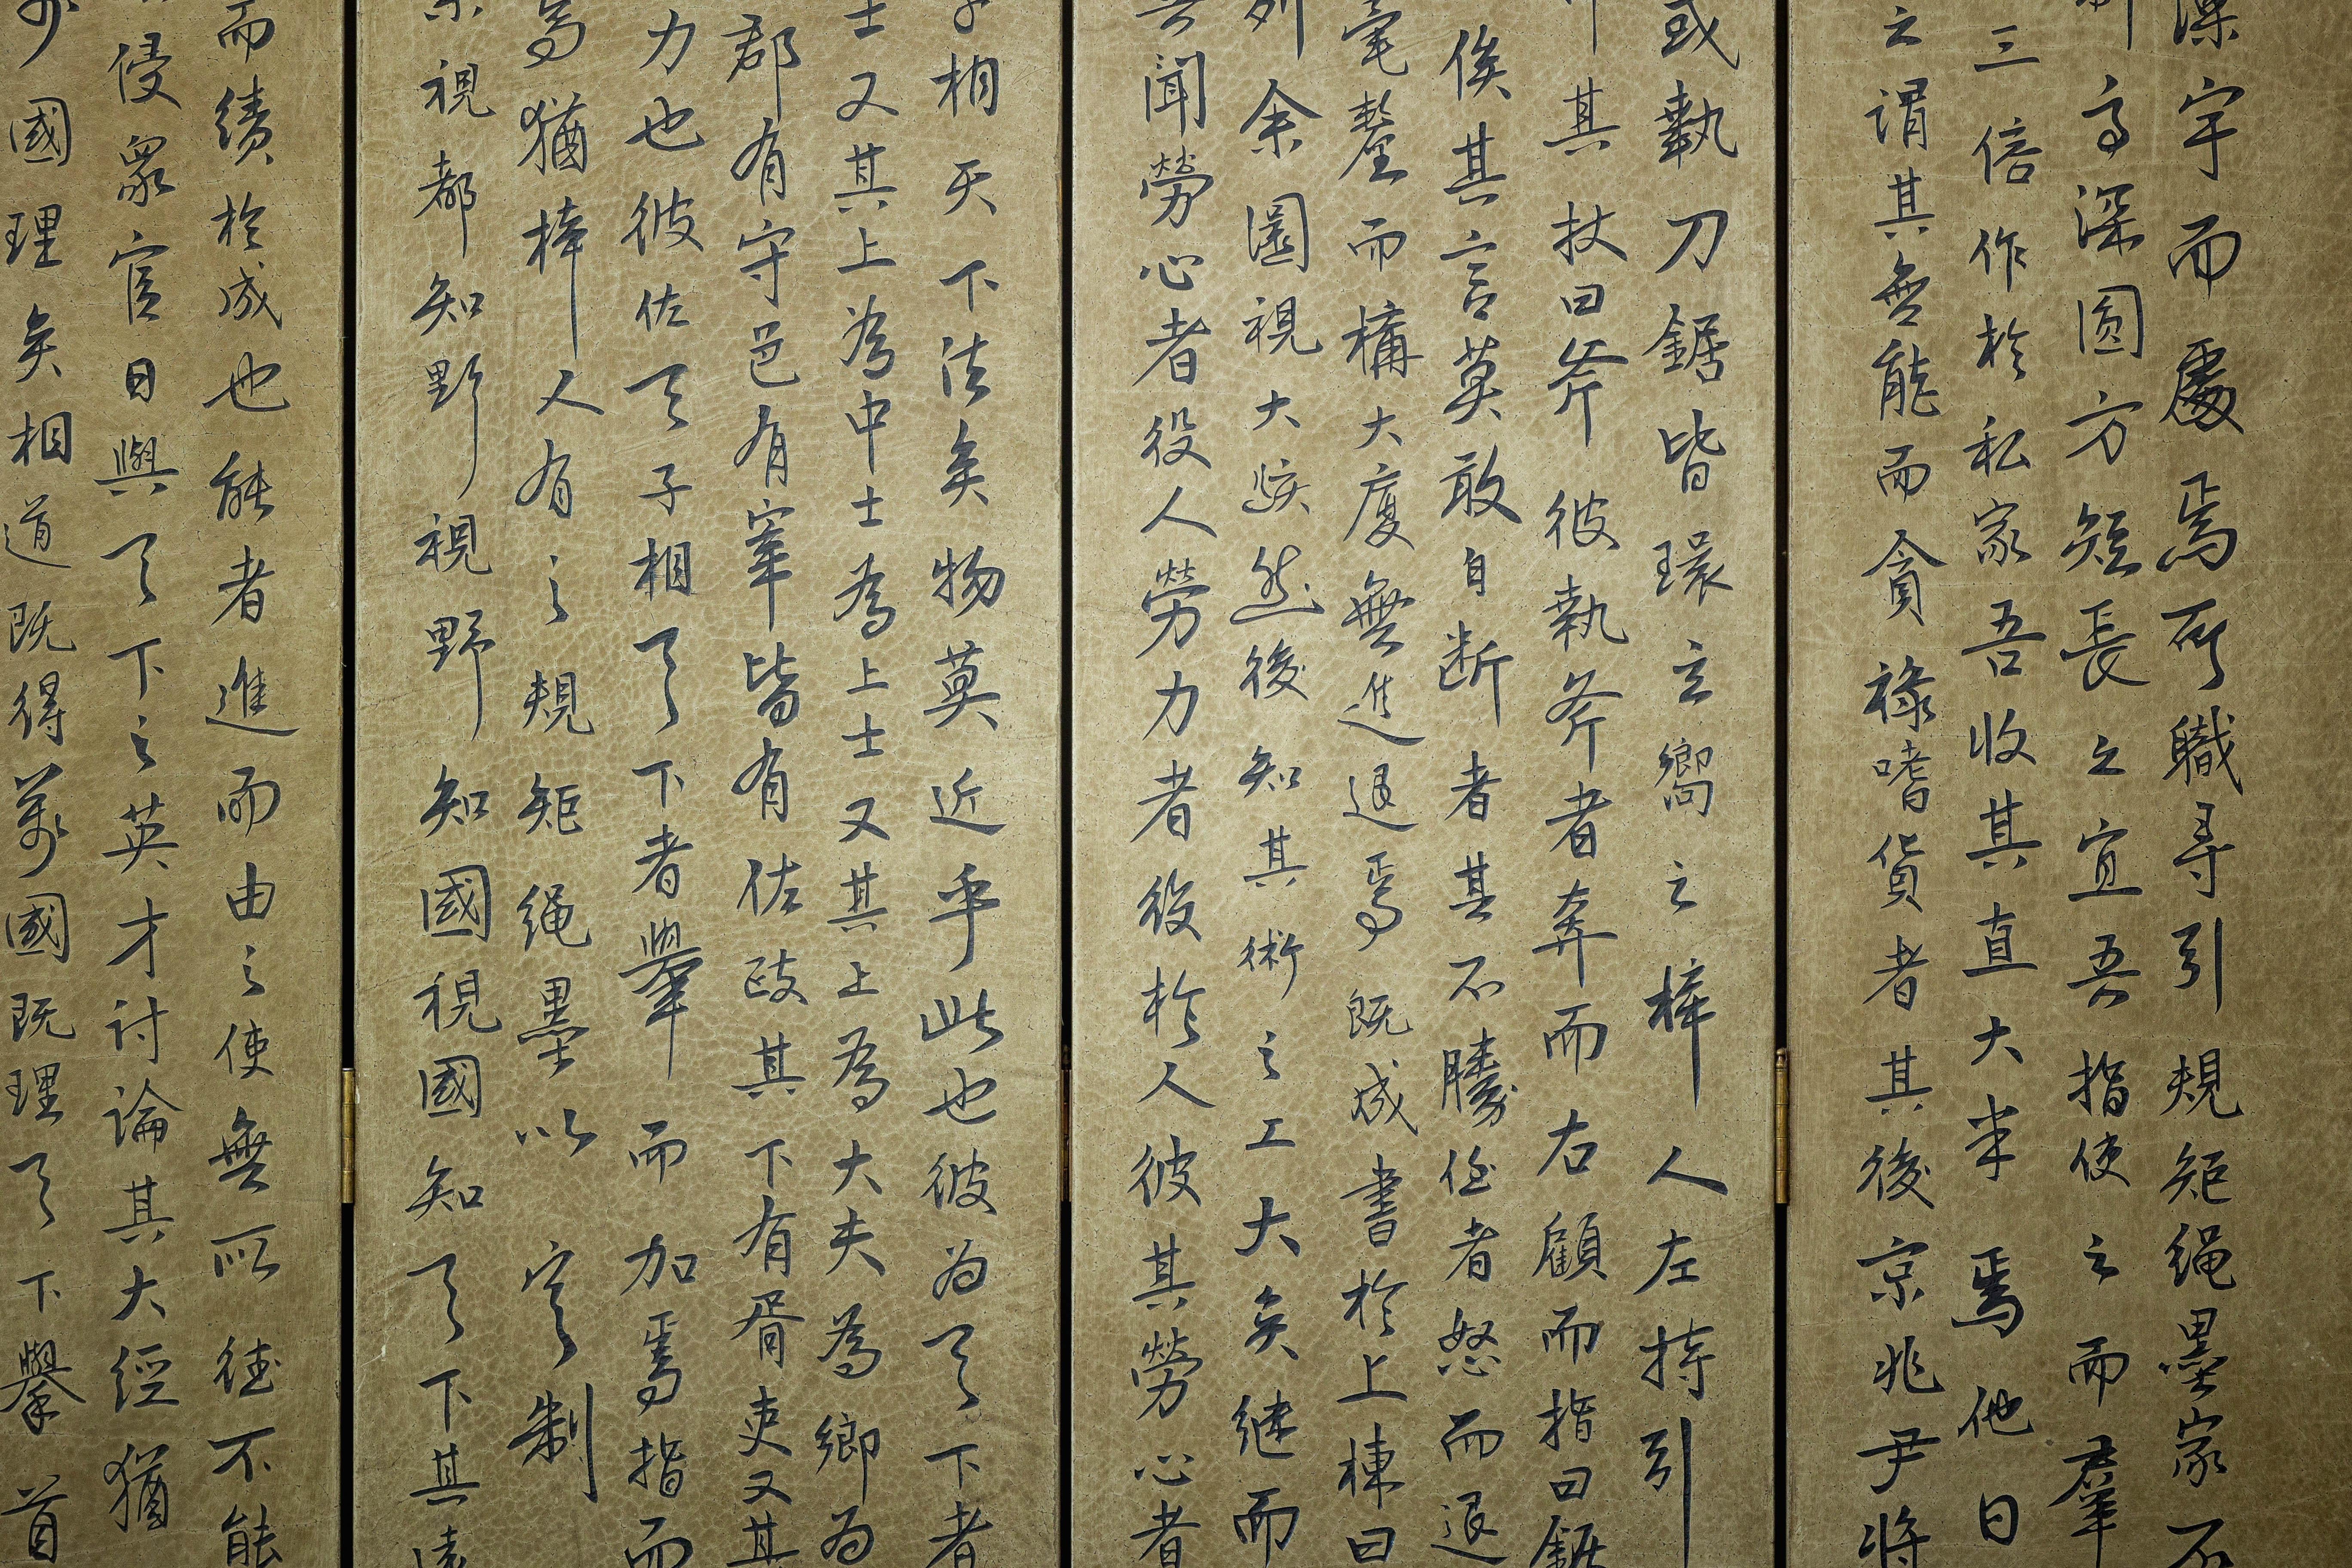 宇而處焉所職尋引規矩绳墨家不
高深圆方短長之宜吾指使之而羣
三倍作於私家吾收其直大半焉他日
之謂其無能而貪祿嗜貨者其後京兆尹將
或執刀鋸皆環立嚮之梓人左持引
其杖曰斧彼執斧者奔而右顧而指曰鋸
俟其言莫敢自断者其不勝任者怒而退
毫釐而構大廈無進退焉既成書於上棟曰
列余圜視大駭然後知其術之工大矣继而
聞勞心者役人勞力者役於人彼其勞心者
相天下法矣物莫近乎此也彼为天下者
士又其上為中士為上士又其上為大夫為卿为
郡有守邑有宰皆有佐政其下有胥吏又其
力也彼佐天子相天下者舉而加焉指而
焉猶梓人有之規矩绳墨以定制
視都知野視野知國視國知天下其遠
而績於成也能者進而由之使無所德不能
侵眾官日與天下之英才討論其大經猶
國理矣相道既得萬國既理天下舉首